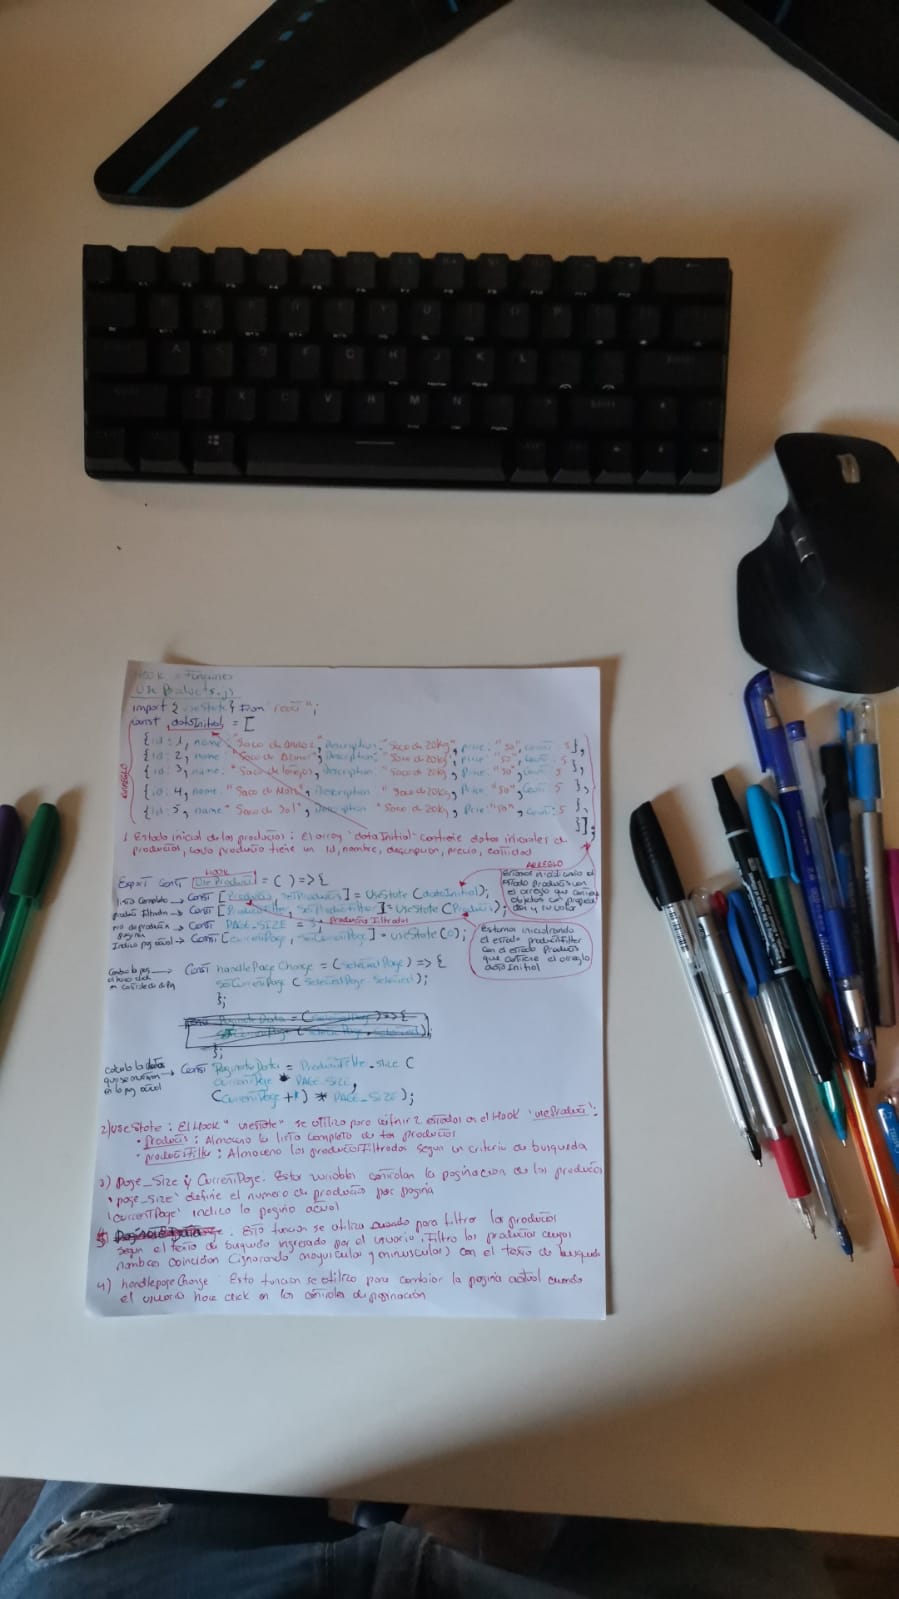 HOOK = funciones
UseProducts.js
import { useState } from "react";
const dataInitial = [
{id: 1, name: "Saco de Arroz", Description: "Saco de 20kg", price: "50", cant: 5},
{id: 2, name: "Saco de", Description: "Saco de 20kg", price: "50", cant: 5
{id: 3, name: "Saco de", Description "Saco de 20kg", Price: "50", cant: 5 },
{id: 4, name: "Saco de", Description "Saco de 20kg", Price: "50", cant: 5 },
{id: 5, name "Saco de Sal", Description "Saco de 20kg", Price: "40", cant: 5 },
}];
ARREGLO
1 Estado inicial de los productos: el array "dataInitial" contiene datos iniciales de
productos, cada producto tiene un id, nombre, descripcion, precio, cantidad
HOOK
Export Const UseProduct = ( ) => {
lista completa → Const [Products, setProducts] = UseState (dataInitial);
producto filtrado → Const [ProductFilter, setProductFilter] = UseState (Products);
Productos Filtrados
→ Const PAGE_SIZE =
Indica pag actual → Const [CurrentPage, setCurrentPage] = useState(0);
ARREGLO
Estamos inicializando el
Estado products con
el arreglo que contiene
objetos con
y su valor
Estamos inicializando
el estado productFilter
con el estado Products
que contiene el arreglo
dataInitial
→ Const handlePageChange = (SelectedPage) => {
setCurrentPage (SelectedPage.Selected);
};
};
calcula los datos
que se muestran
en la pag actual → Const PaginateData = ProductFilter.slice (
CurrentPage * PAGE_SIZE,
(CurrentPage + 1) * PAGE_SIZE);
2) UseState: El Hook "useState" se utiliza para definir 2 estados en el Hook 'useProduct':
• products: Almacena la lista completa de los productos
• productFilter: Almacena los productos filtrados segun un criterio de busqueda
3) Page_Size y CurrentPage. Estas variables controlan la paginacion de los productos
• 'page_size' define el numero de productos por pagina
'currentPage' indica la pagina actual
Esta funcion se utiliza para filtrar los productos
segun el texto de busqueda ingresado por el usuario, Filtra los productos cuyos
nombres coincidan (ignorando mayusculas y minusculas) con el texto de busqueda
4) handlepageChange: Esta funcion se utiliza para cambiar la pagina actual cuando
el usuario hace click en los controles de paginación